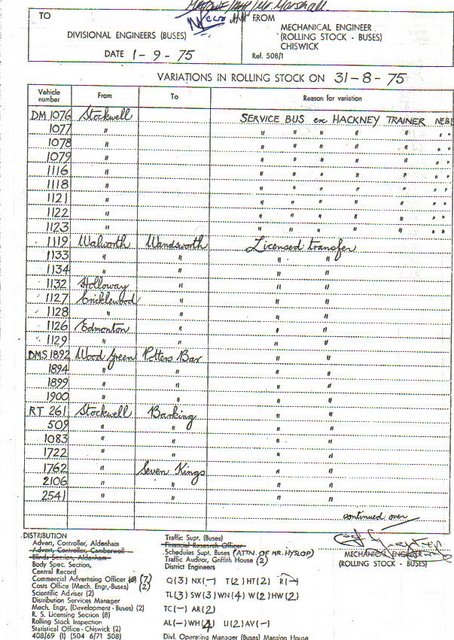 Mr Marshall
TO
FROM
DIVISIONAL ENGINEERS (BUSES)
MECHANICAL ENGINEER
(ROLLING STOCK - BUSES)
CHISWICK
DATE 1-9-75
Ref. 508/1
VARIATIONS IN ROLLING STOCK ON 31-8-75
Vehicle number From To Reason for variation
DM 1076 Stockwell SERVICE BUS ex HACKNEY TRAINER
1077 " " " " " " " "
1078 " " " " " " " "
1079 " " " " " " " "
1116 " " " " " " " "
1118 " " " " " " " "
1121 " " " " " " " "
1122 " " " " " " " "
1123 " " " " " " " "
1119 Walworth Wandsworth Licensed transfer
1133 " " " "
1134 " " " "
1132 Holloway " " "
1127 Cricklewood " " "
1128 " " " "
1126 Edmonton " " "
1129 " " " "
DMS 1892 Wood Green Potters Bar " "
1894 " " " "
1899 " " " "
1900 " " " "
RT 261 Stockwell Barking " "
509 " " " "
1083 " " " "
1722 " " " "
1762 " Seven Kings " "
2106 " " " "
2541 " " " "
continued over
MECHANICAL ENGINEER
(ROLLING STOCK - BUSES)
DISTRIBUTION
Advert. Controller, Aldenham
Advert. Controller, Camberwell
Blinds Section, Aldenham
Body Spec. Section,
Central Record
Commercial Advertising Officer (7)
Costs Office (Mech. Engr.-Buses) (2)
Scientific Adviser (2)
Distribution Services Manager
Mech. Engr. (Development-Buses) (2)
R. S. Licensing Section (8)
Rolling Stock Inspection
Statistical Office-Chiswick (2)
408/69 (1) (504 6/71 508)
Traffic Supt. (Buses)
Financial Research Officer
Schedules Supt. Buses (ATTN. OF MR. HYSLOP)
Traffic Auditor, Griffith House (2)
District Engineers
Q(3) NX(-) T(2) HT(2) R(-)
TL(3) SW(3) WN(4) W(2) HW(2)
TC(-) AR(2)
AL(-) WH(4) U(2) AV(-)
Divl. Operating Manager (Buses) Mansion House